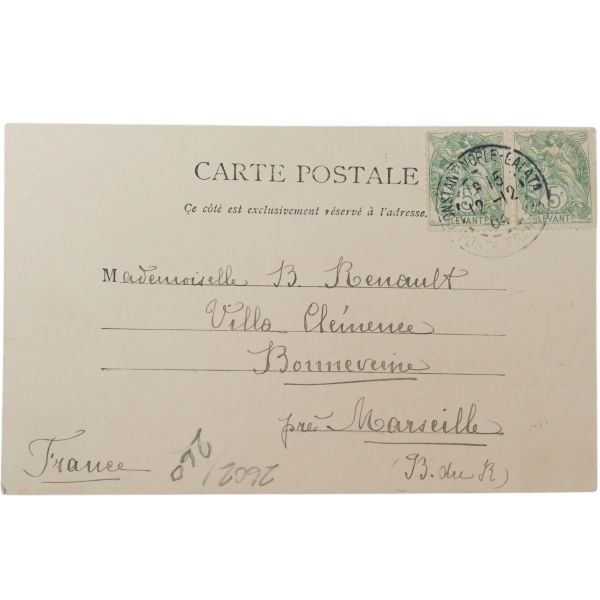 CARTE POSTALE
Ce côté est exclusivement réservé à l'adresse.
CONSTANTINOPLE-GALATA
15
12
04
5
LEVANT
LEVANT
Mademoiselle B. Renault
Villa Clémence
Bonneveine
près Marseille
(B. du R)
France